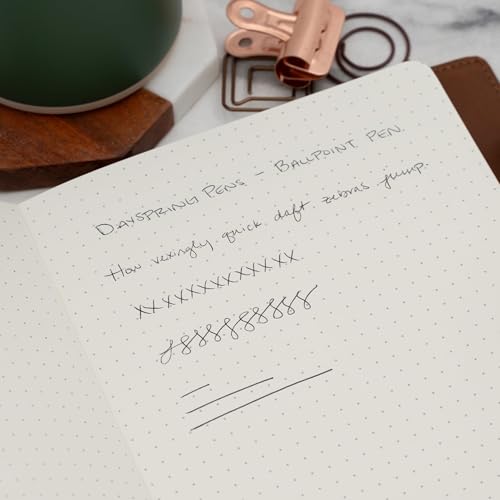 DAYSPRING PENS – BALLPOINT PEN.
How vexingly quick daft zebras jump.
XXXXXXXXXXXXXX